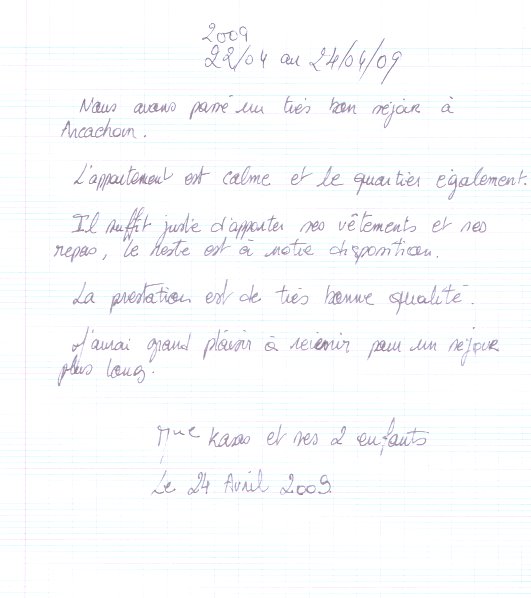 2009
22/04 au 24/04/09
Nous avons passé un très bon séjour à
Arcachon.
L'appartement est calme et le quartier également.
Il suffit juste d'apporter ses vêtements et ses
repas, le reste est à notre disposition.
La prestation est de très bonne qualité.
J'aurai grand plaisir à revenir pour un séjour
plus long.
et ses 2 enfants
Le 24 Avril 2009